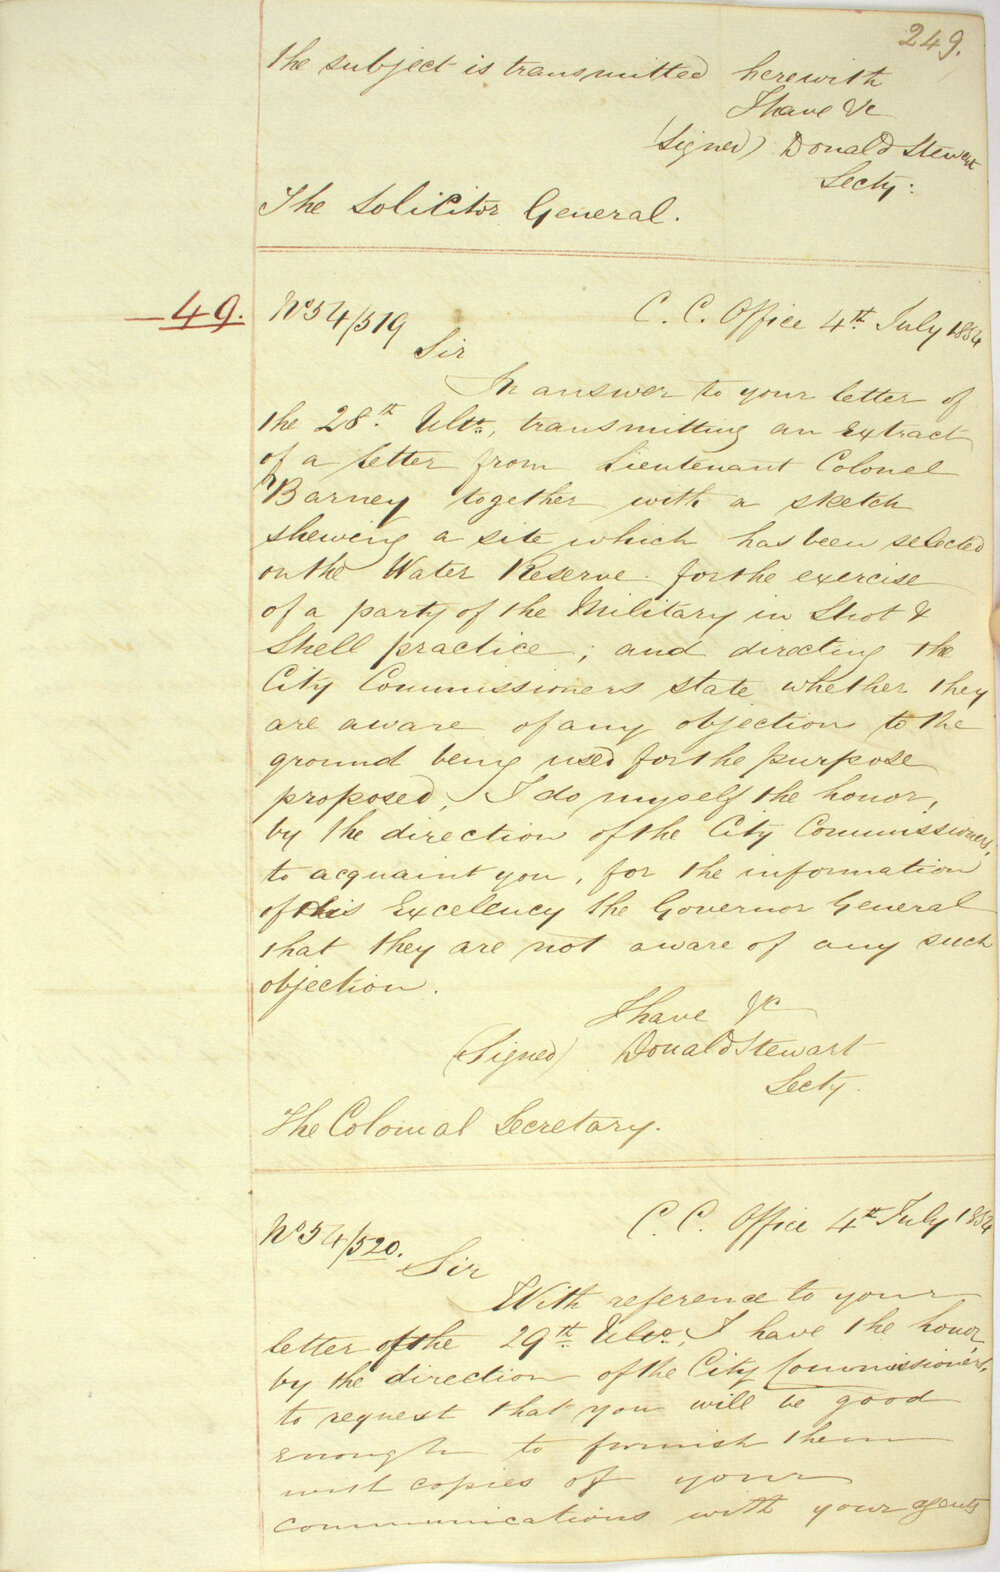 249.
the subject is transmitted herewith
I have &c
(Signed) Donald Stewart
Secty.
The Solicitor General.
49.
No 54/519
C. C. Office 4th July 1854
Sir
In answer to your letter of
the 28th Ulto, transmitting an Extract
of a letter from Lieutenant Colonel
Barney together with a sketch
shewing a site which has been selected
on the Water Reserve for the exercise
of a party of the Military in Shot &
Shell practice; and directing the
City Commissioners state whether they
are aware of any objection to the
ground being used for the purpose
proposed, I do myself the honor,
by the direction of the City Commissioners,
to acquaint you, for the information
of His Excellency the Governor General
that they are not aware of any such
objection.
I have &c
(Signed) Donald Stewart
Secty.
The Colonial Secretary.
No 54/520.
C. C. Office 4th July 1854
Sir
With reference to your
letter of the 29th Ulto, I have the honor,
by the direction of the City Commissioners,
to request that you will be good
enough to furnish them
with copies of your
communications with your agents